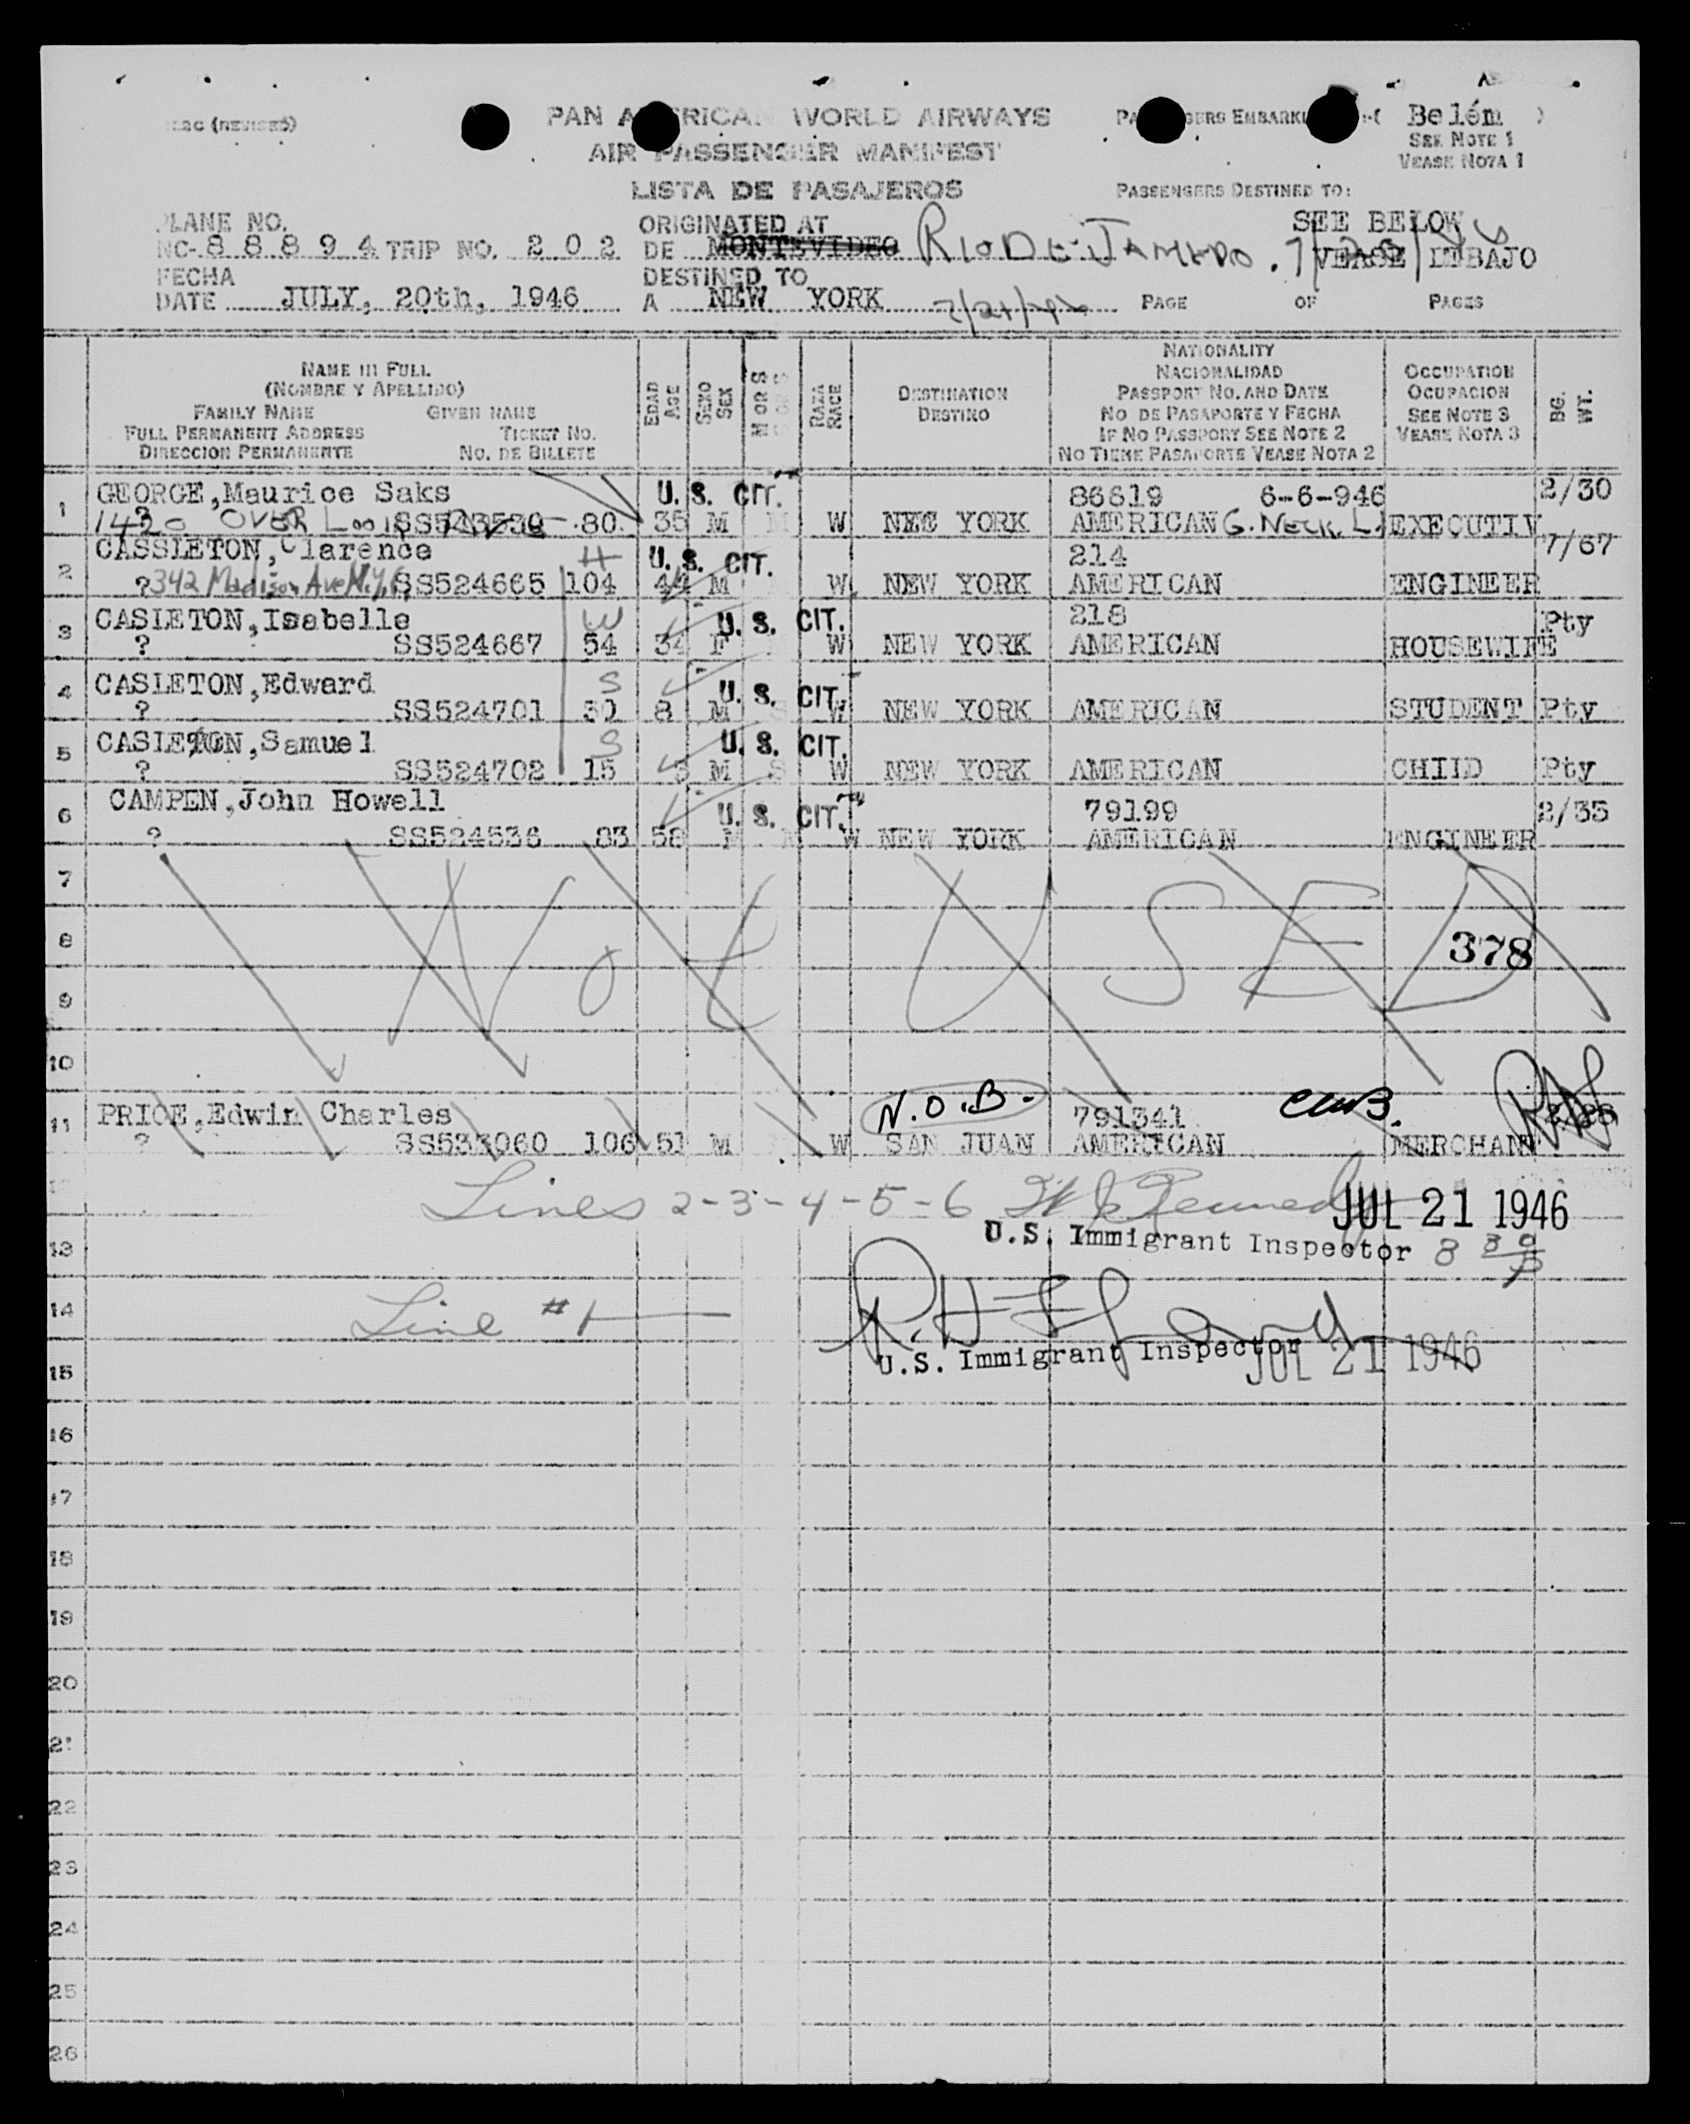 (REVISED)
PAN AMERICAN WORLD AIRWAYS
AIR PASSENGER MANIFEST
LISTA DE PASAJEROS
Belém )
SEE NOTE 1
VEASE NOTA 1
PASSENGERS DESTINED TO:
SEE BELOW
VEASE DEBAJO
PLANE NO.
NC-88894 TRIP NO. 202
ORIGINATED AT
DE MONTEVIDEO RIO DE JANEIRO.
FECHA
DATE JULY, 20th, 1946
DESTINED TO
A NEW YORK
PAGE OF PAGES
NAME IN FULL
(NOMBRE Y APELLIDO)
FAMILY NAME GIVEN NAME
FULL PERMANENT ADDRESS TICKET NO.
DIRECCION PERMANENTE NO. DE BILLETE
EDAD
AGE
SEXO
SEX
M OR S
RAZA
RACE
DESTINATION
DESTINO
NATIONALITY
NACIONALIDAD
PASSPORT NO. AND DATE
NO DE PASAPORTE Y FECHA
IF NO PASSPORT SEE NOTE 2
NO TIENE PASAPORTE VEASE NOTA 2
OCCUPATION
OCUPACION
SEE NOTE 3
VEASE NOTA 3
BG.
WT.
1 GEORGE, Maurice Saks U. S. CIT. 86619 6-6-946 2/30
? 1420 OVER LOOK 80 35 M M W NEW YORK AMERICAN G. NECK L.I EXECUTIV
2 CASSLETON, Clarence H U. S. CIT. 214 7/67
? 342 Madison Ave N.Y.C. SS524665 104 44 M W NEW YORK AMERICAN ENGINEER
3 CASLETON, Isabelle W U. S. CIT. 218 Pty
? SS524667 54 34 F W NEW YORK AMERICAN HOUSEWIFE
4 CASLETON, Edward S U. S. CIT.
? SS524701 30 8 M S W NEW YORK AMERICAN STUDENT Pty
5 CASLETON, Samuel S U. S. CIT.
? SS524702 15 5 M S W NEW YORK AMERICAN CHILD Pty
6 CAMPEN, John Howell U. S. CIT. 79199 2/35
? SS524536 83 58 M M W NEW YORK AMERICAN ENGINEER
7
NOT USED
8 378
9
10
N.O.B.
11 PRICE, Edwin Charles 791341
? SS533060 106 51 M W SAN JUAN AMERICAN MERCHANT
Lines 2-3-4-5-6 JUL 21 1946
U.S. Immigrant Inspector
13
14 Line #1
U.S. Immigrant Inspector JUL 21 1946
15
16
17
18
19
20
21
22
23
24
25
26